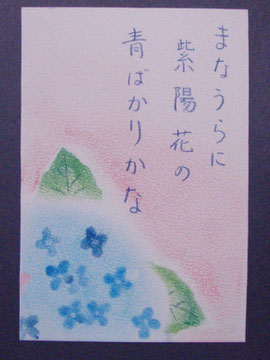 まなうらに
紫陽花の
青ばかりかな